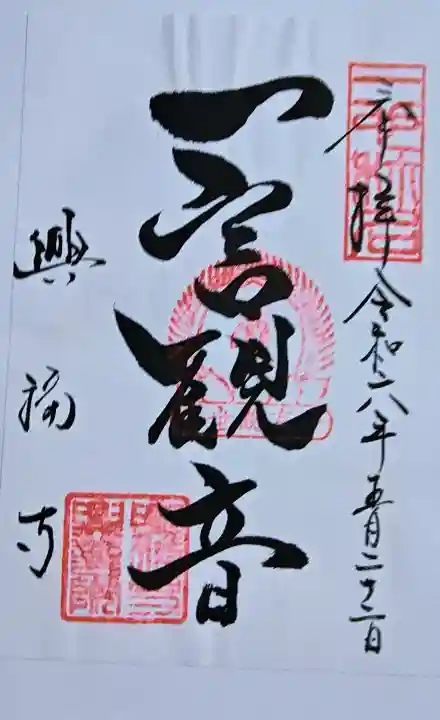 奉拝 令和六年五月二十二日
一宮観音
興福寺